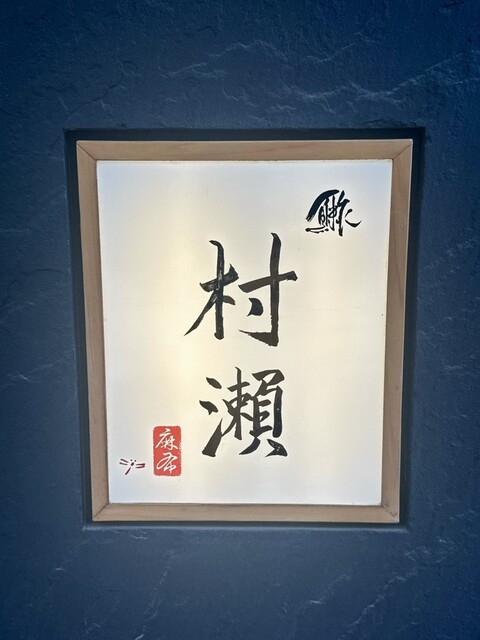 鮨
村瀬
麻布